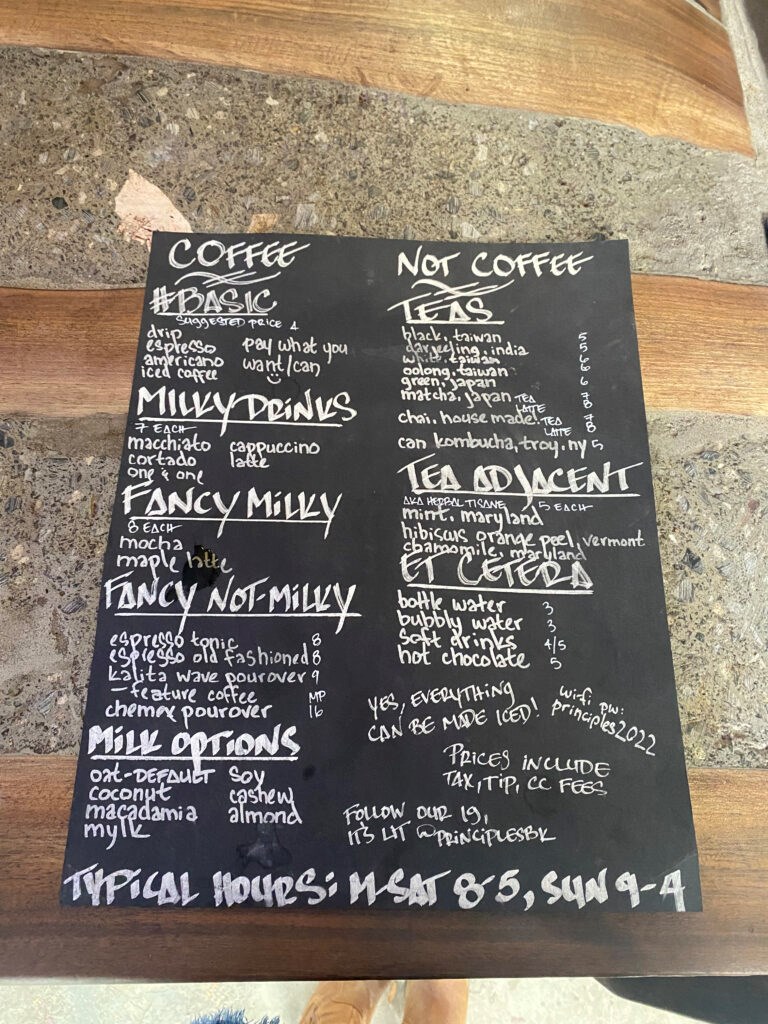 COFFEE
#BASIC
SUGGESTED PRICE 4
drip
espresso
americano
iced coffee
pay what you
want/can
MILKY DRINKS
7 EACH
macchiato cappuccino
cortado latte
one & one
FANCY MILKY
8 EACH
mocha
maple latte
FANCY NOT-MILKY
espresso tonic 8
espresso old fashioned 8
kalita wave pourover 9
- feature coffee MP
chemex pourover 16
MILK OPTIONS
oat-DEFAULT soy
coconut cashew
macadamia almond
mylk
NOT COFFEE
TEAS
black, taiwan 5
darjeeling, india 5
white, taiwan 6
oolong, taiwan 6
green, japan 6
matcha, japan TEA 7
LATTE 8
chai, house made! TEA 7
LATTE 8
can kombucha, troy, ny 5
TEA ADJACENT
AKA HERBAL TISANE 5 EACH
mint, maryland
hibiscus orange peel, vermont
chamomile, maryland
ET CETERA
bottle water 3
bubbly water 3
soft drinks 4/5
hot chocolate 5
YES, EVERYTHING
CAN BE MADE ICED!
wi-fi pw:
principles2022
PRICES INCLUDE
TAX, TIP, CC FEES
FOLLOW OUR IG,
IT'S LIT @PRINCIPLESBK
TYPICAL HOURS: M-SAT 8-5, SUN 9-4